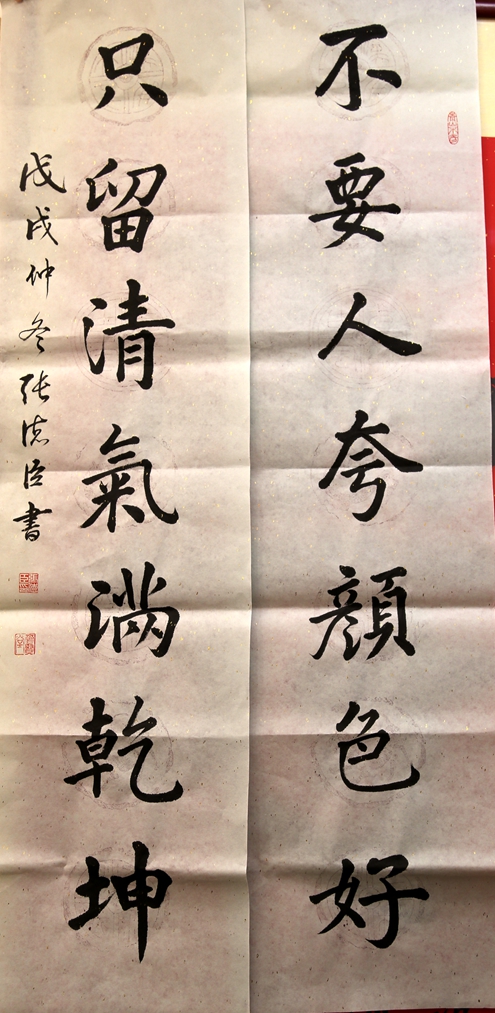 不要人夸顔色好
只留清氣滿乾坤
戊戌仲冬張德臣書